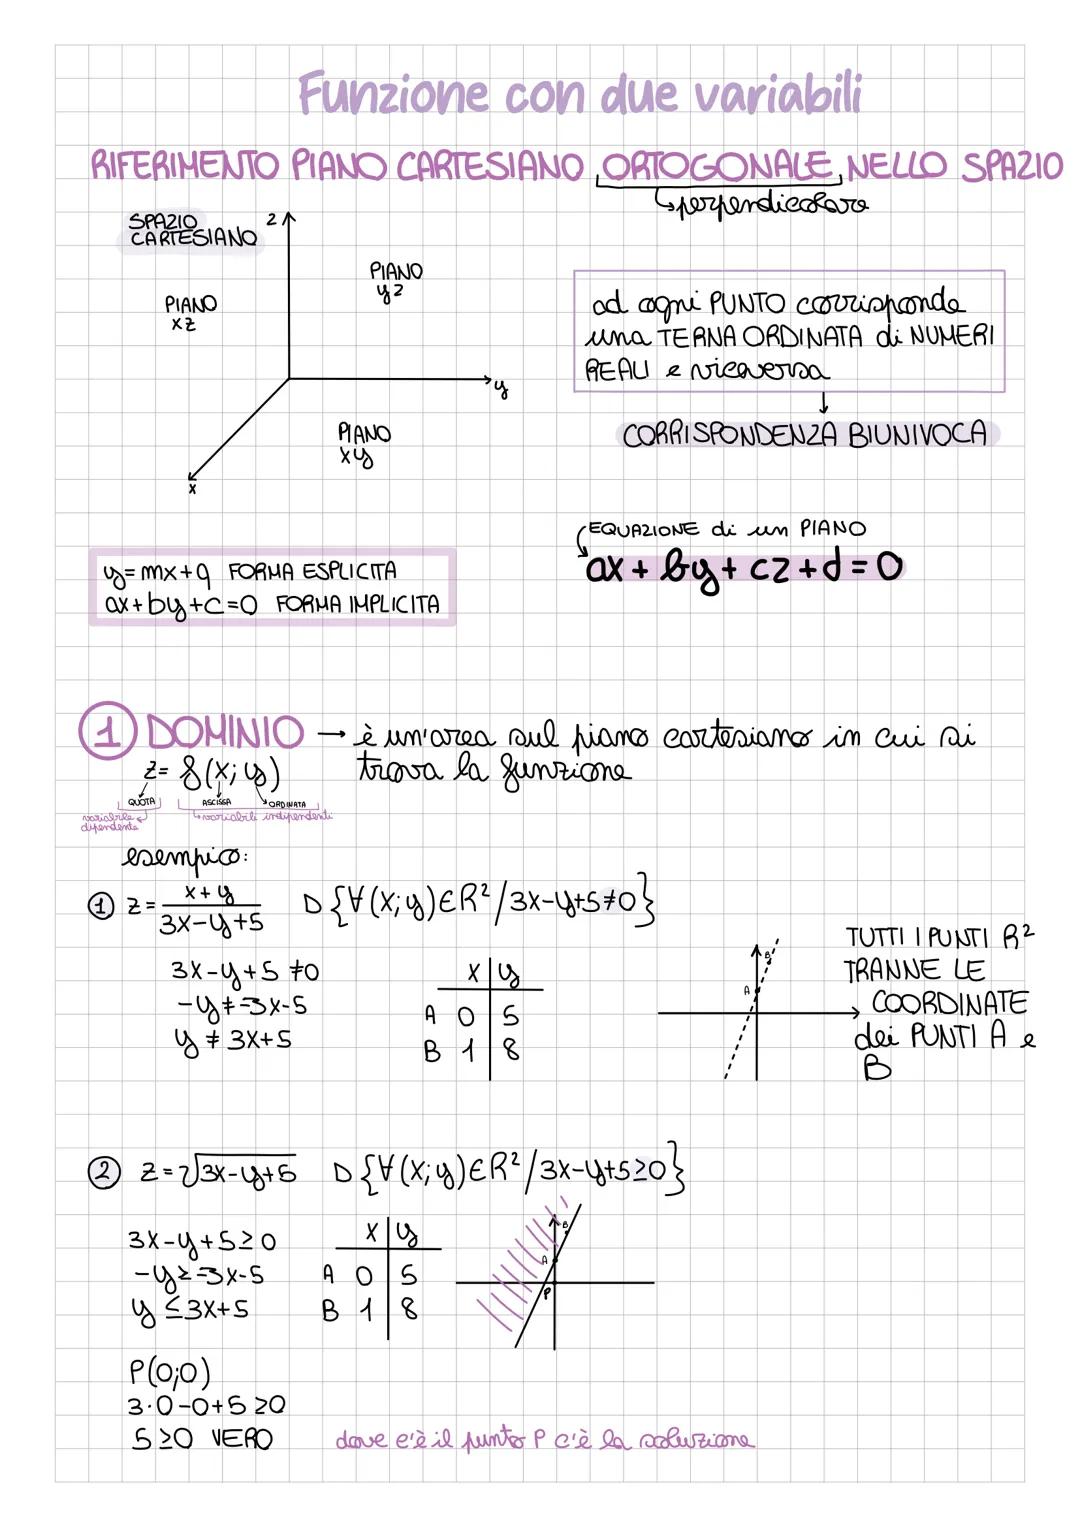 Funzione con due variabili
RIFERIMENTO PIANO CARTESIANO ORTOGONALE NELLO SPAZIO
perpendicolare
SPAZIO
CARTESIANO
z
PIANO
xz
PIANO
yz
y
PIANO
xy
x
ad ogni PUNTO corrisponde
una TERNA ORDINATA di NUMERI
REALI e viceversa
CORRISPONDENZA BIUNIVOCA
EQUAZIONE di un PIANO
ax + by + cz + d = 0
y = mx + q FORMA ESPLICITA
ax + by + c = 0 FORMA IMPLICITA
1 DOMINIO → è un'area sul piano cartesiano in cui si
trova la funzione
z = f(x; y)
QUOTA ASCISSA ORDINATA
variabile dipendente
variabili indipendenti
esempio:
1 z = x + y / 3x - y + 5 D {∀(x; y) ∈ R² / 3x - y + 5 ≠ 0}
3x - y + 5 ≠ 0
-y ≠ -3x - 5
y ≠ 3x + 5
x | y
A 0 | 5
B 1 | 8
B
A
TUTTI I PUNTI R²
TRANNE LE
COORDINATE
dei PUNTI A e
B
2 z = 2√3x - y + 5 D {∀(x; y) ∈ R² / 3x - y + 5 ≥ 0}
3x - y + 5 ≥ 0
-y ≥ -3x - 5
y ≤ 3x + 5
x | y
A 0 | 5
B 1 | 8
B
A
P
P(0;0)
3·0 - 0 + 5 ≥ 0
5 ≥ 0 VERO
dove c'è il punto P c'è la soluzione